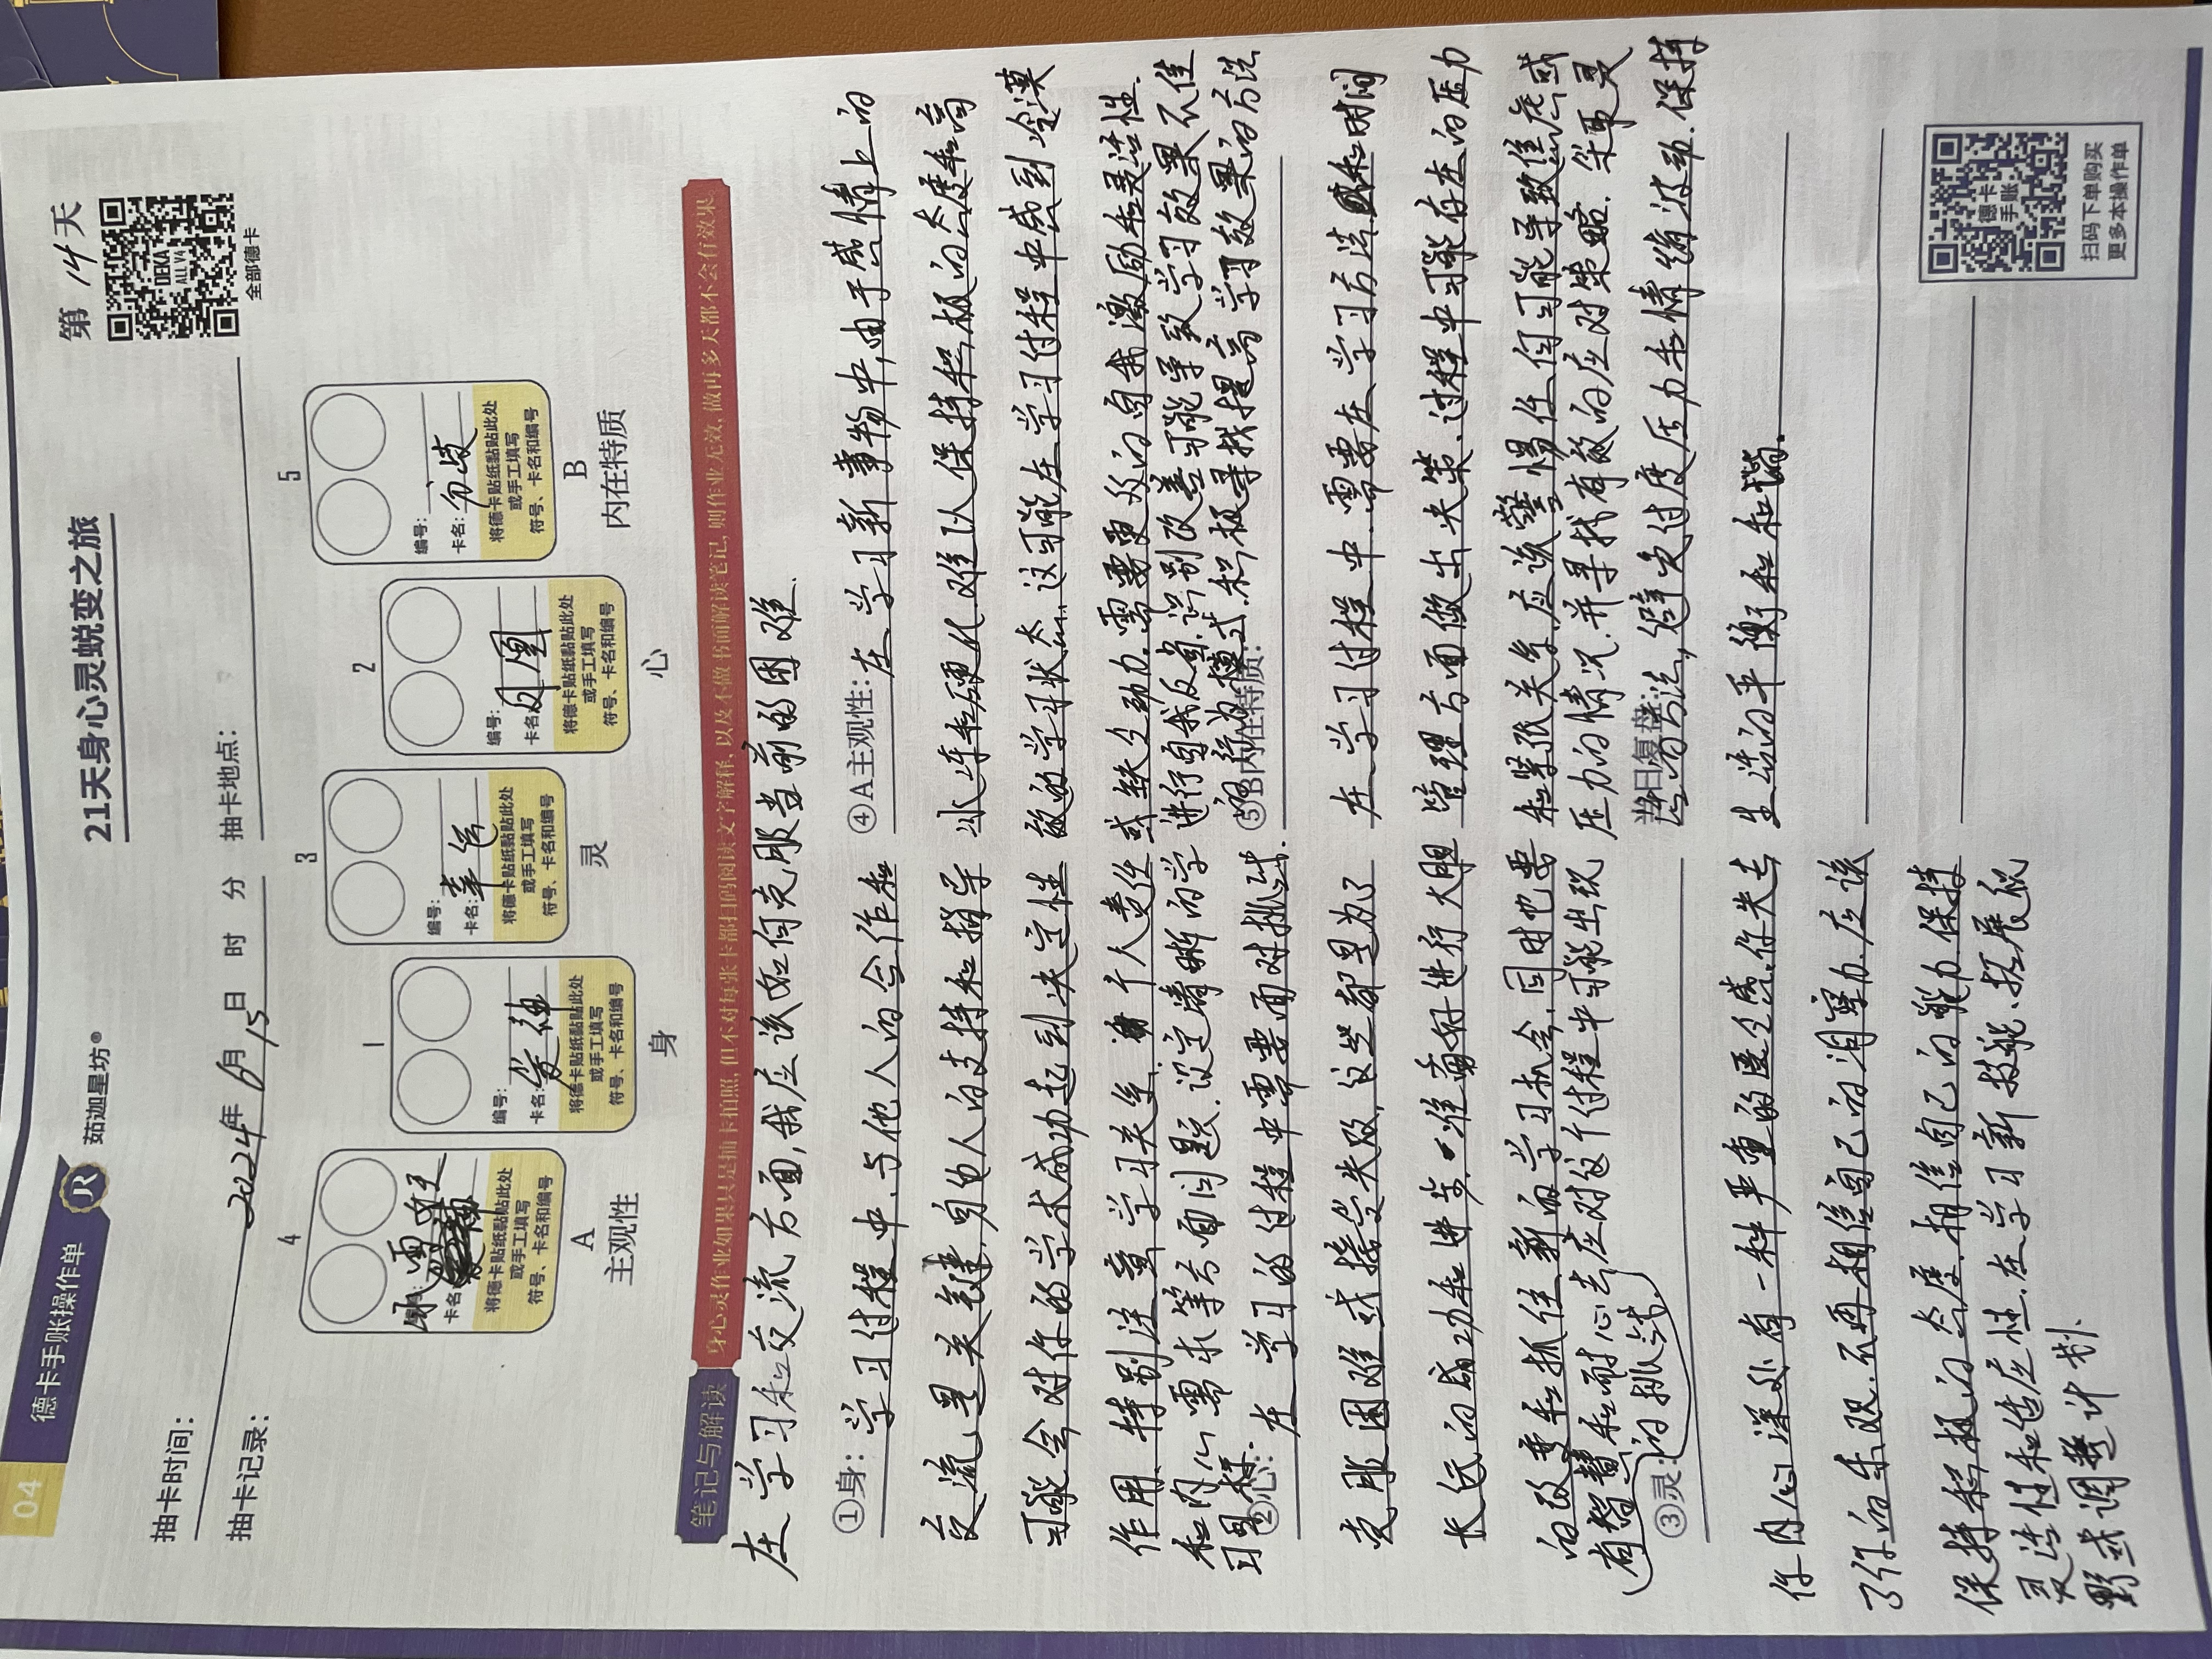 04 德卡手账操作单
JR 茹迦星坊®
21天身心灵蜕变之旅
第 14 天
抽卡时间：
2024年 6月 15日 时 分 抽卡地点：
抽卡记录：
DEKA
ALL V4
全部德卡
4
冰雪女王
卡名
将德卡贴纸黏贴此处
或手工填写
符号、卡名和编号
A
主观性
1
编号：
卡名：爱神
将德卡贴纸黏贴此处
或手工填写
符号、卡名和编号
身
3
编号：
卡名：幸运
将德卡贴纸黏贴此处
或手工填写
符号、卡名和编号
灵
2
编号：
卡名：凤凰
将德卡贴纸黏贴此处
或手工填写
符号、卡名和编号
心
5
编号：
卡名：分歧
将德卡贴纸黏贴此处
或手工填写
符号、卡名和编号
B
内在特质
笔记与解读
身心灵作业如果只是抽卡拍照，但不对每张卡都扫码阅读文字解释，以及不做书面解读笔记，则作业无效，做再多天都不会有效果
在学习和交流方面，我应该如何克服当前的困难．
①身：学习过程中．与他人的合作和
交流是关键，身边人的支持和指导
可能会对你的学术成功起到决定性
作用．特别注意学习关系．个人责任
和内心需求等方面问题．设定清晰的学
习目标．
②心：在学习的过程中需要面对挑战．
克服困难或接受失败，这些都是为了
长远的成功和进步．准备好进行大胆
的改变和抓住新的学习机会．同时也要
有智慧和耐心去应对这个过程中可能出现
的挑战
③灵：
你内心深处有一种严重的匮乏感，你失去
了你的乐观．不再相信自己的洞察力．应该
保持积极的态度．相信自己的能力．保持
灵活性和适应性．在学习新技能、拓展视
野或调整计划．
④A主观性：在学习新事物中，由于感情上的
冰冻和硬化．难以保持积极的态度和高
效的学习状态．这可能在学习过程中感到冷漠
或缺乏动力．需要更多的自我激励和灵活性．
进行自我反省．识别改善可能导致学习效果不佳
的行为模式．积极寻找提高学习效果的方法
⑤B内在特质：
在学习过程中．需要在学习方法和时间
管理方面做出决策．过程中可能存在的压力
和紧张关系．应该警惕任何可能导致焦虑或
压力的情况．并寻找有效的应对策略．采取灵
活的方法，避免过度压力和情绪波动．保持
当日复盘：
生活的平衡和和谐．
德卡
手账
扫码下单购买
更多本操作单